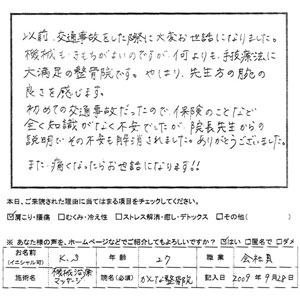 以前、交通事故をした際に大変お世話になりました。
機械もきもちがよいのですが、何よりも、手技療法に
大満足の整骨院です。やはり、先生方の腕の
良さを感じます。
初めての交通事故だったので、保険のことなど
全く知識がなく不安でしたが、院長先生からの
説明でその不安も解消されました。ありがとうございました。
また痛くなったらお世話になります!!
本日、ご来院された理由に当てはまる項目をチェックしてください。
☑肩こり・腰痛 □むくみ・冷え性 □ストレス解消・癒し・デトックス □その他( )
※ あなた様の声を、ホームページなどでご紹介してもよろしいですか? ☑はい □匿名で □ダメ
お名前(イニシャル可) K.S 年齢 27 職業 会社員
施術名 機械治療 マッサージ 院名(必須) かんな整骨院 記入日 2009年9月28日